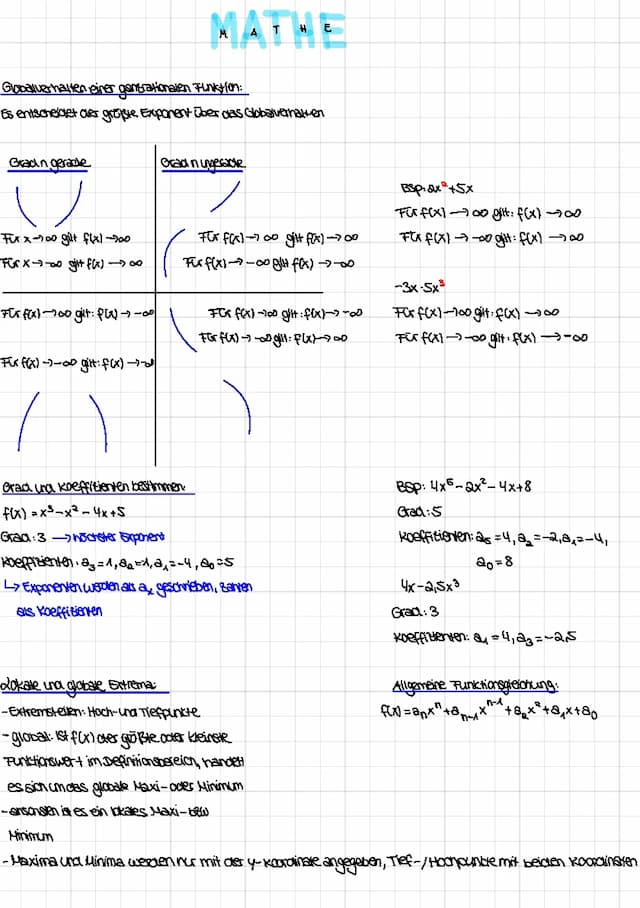 MATHE
M A T H E
Globalverhalten einer ganzrationalen Funktion:
Es entscheidet der größte Exponent über das Globalverhalten
Grad n gerade
Grad n ungerade
Für x→∞ gilt f(x)→∞
Für x→-∞ gilt f(x)→∞
Für f(x)→∞ gilt f(x)→∞
Für f(x)→-∞ gilt f(x)→-∞
Für f(x)→∞ gilt: f(x)→-∞
Für f(x)→-∞ gilt: f(x)→-∞
Für f(x)→∞ gilt: f(x)→-∞
Für f(x)→-∞ gilt: f(x)→∞
BSP: 2x²+5x
Für f(x)→∞ gilt: f(x)→∞
Für f(x)→-∞ gilt: f(x)→∞
-3x·5x³
Für f(x)→∞ gilt: f(x)→∞
Für f(x)→-∞ gilt: f(x)→-∞
Grad und Koeffizienten bestimmen:
f(x) = x³-x²-4x+5
Grad: 3 → höchster Exponent
Koeffizienten: a₃=1, a₂=1, a₁=-4, a₀=5
↳ Exponenten werden als aₓ geschrieben, Zahlen
als Koeffizienten
BSP: 4x⁵-2x²-4x+8
Grad: 5
Koeffizienten: a₅=4, a₂=-2, a₁=-4,
a₀=8
4x-2,5x³
Grad: 3
Koeffizienten: a₁=4, a₃=-2,5
Lokale und globale Extrema:
-Extremstellen: Hoch- und Tiefpunkte
- global: ist f(x) der größte oder kleinste
Funktionswert im Definitionsbereich, handelt
es sich um das globale Maxi- oder Minimum
-ansonsten ist es ein lokales Maxi- bzw
Minimum
- Maxima und Minima werden nur mit der y-Koordinate angegeben, Tief-/Hochpunkte mit beiden Koordinaten
Allgemeine Funktionsgleichung:
f(x) = aₙxⁿ+aₙ₋₁xⁿ⁻¹+a₂x²+a₁x+a₀